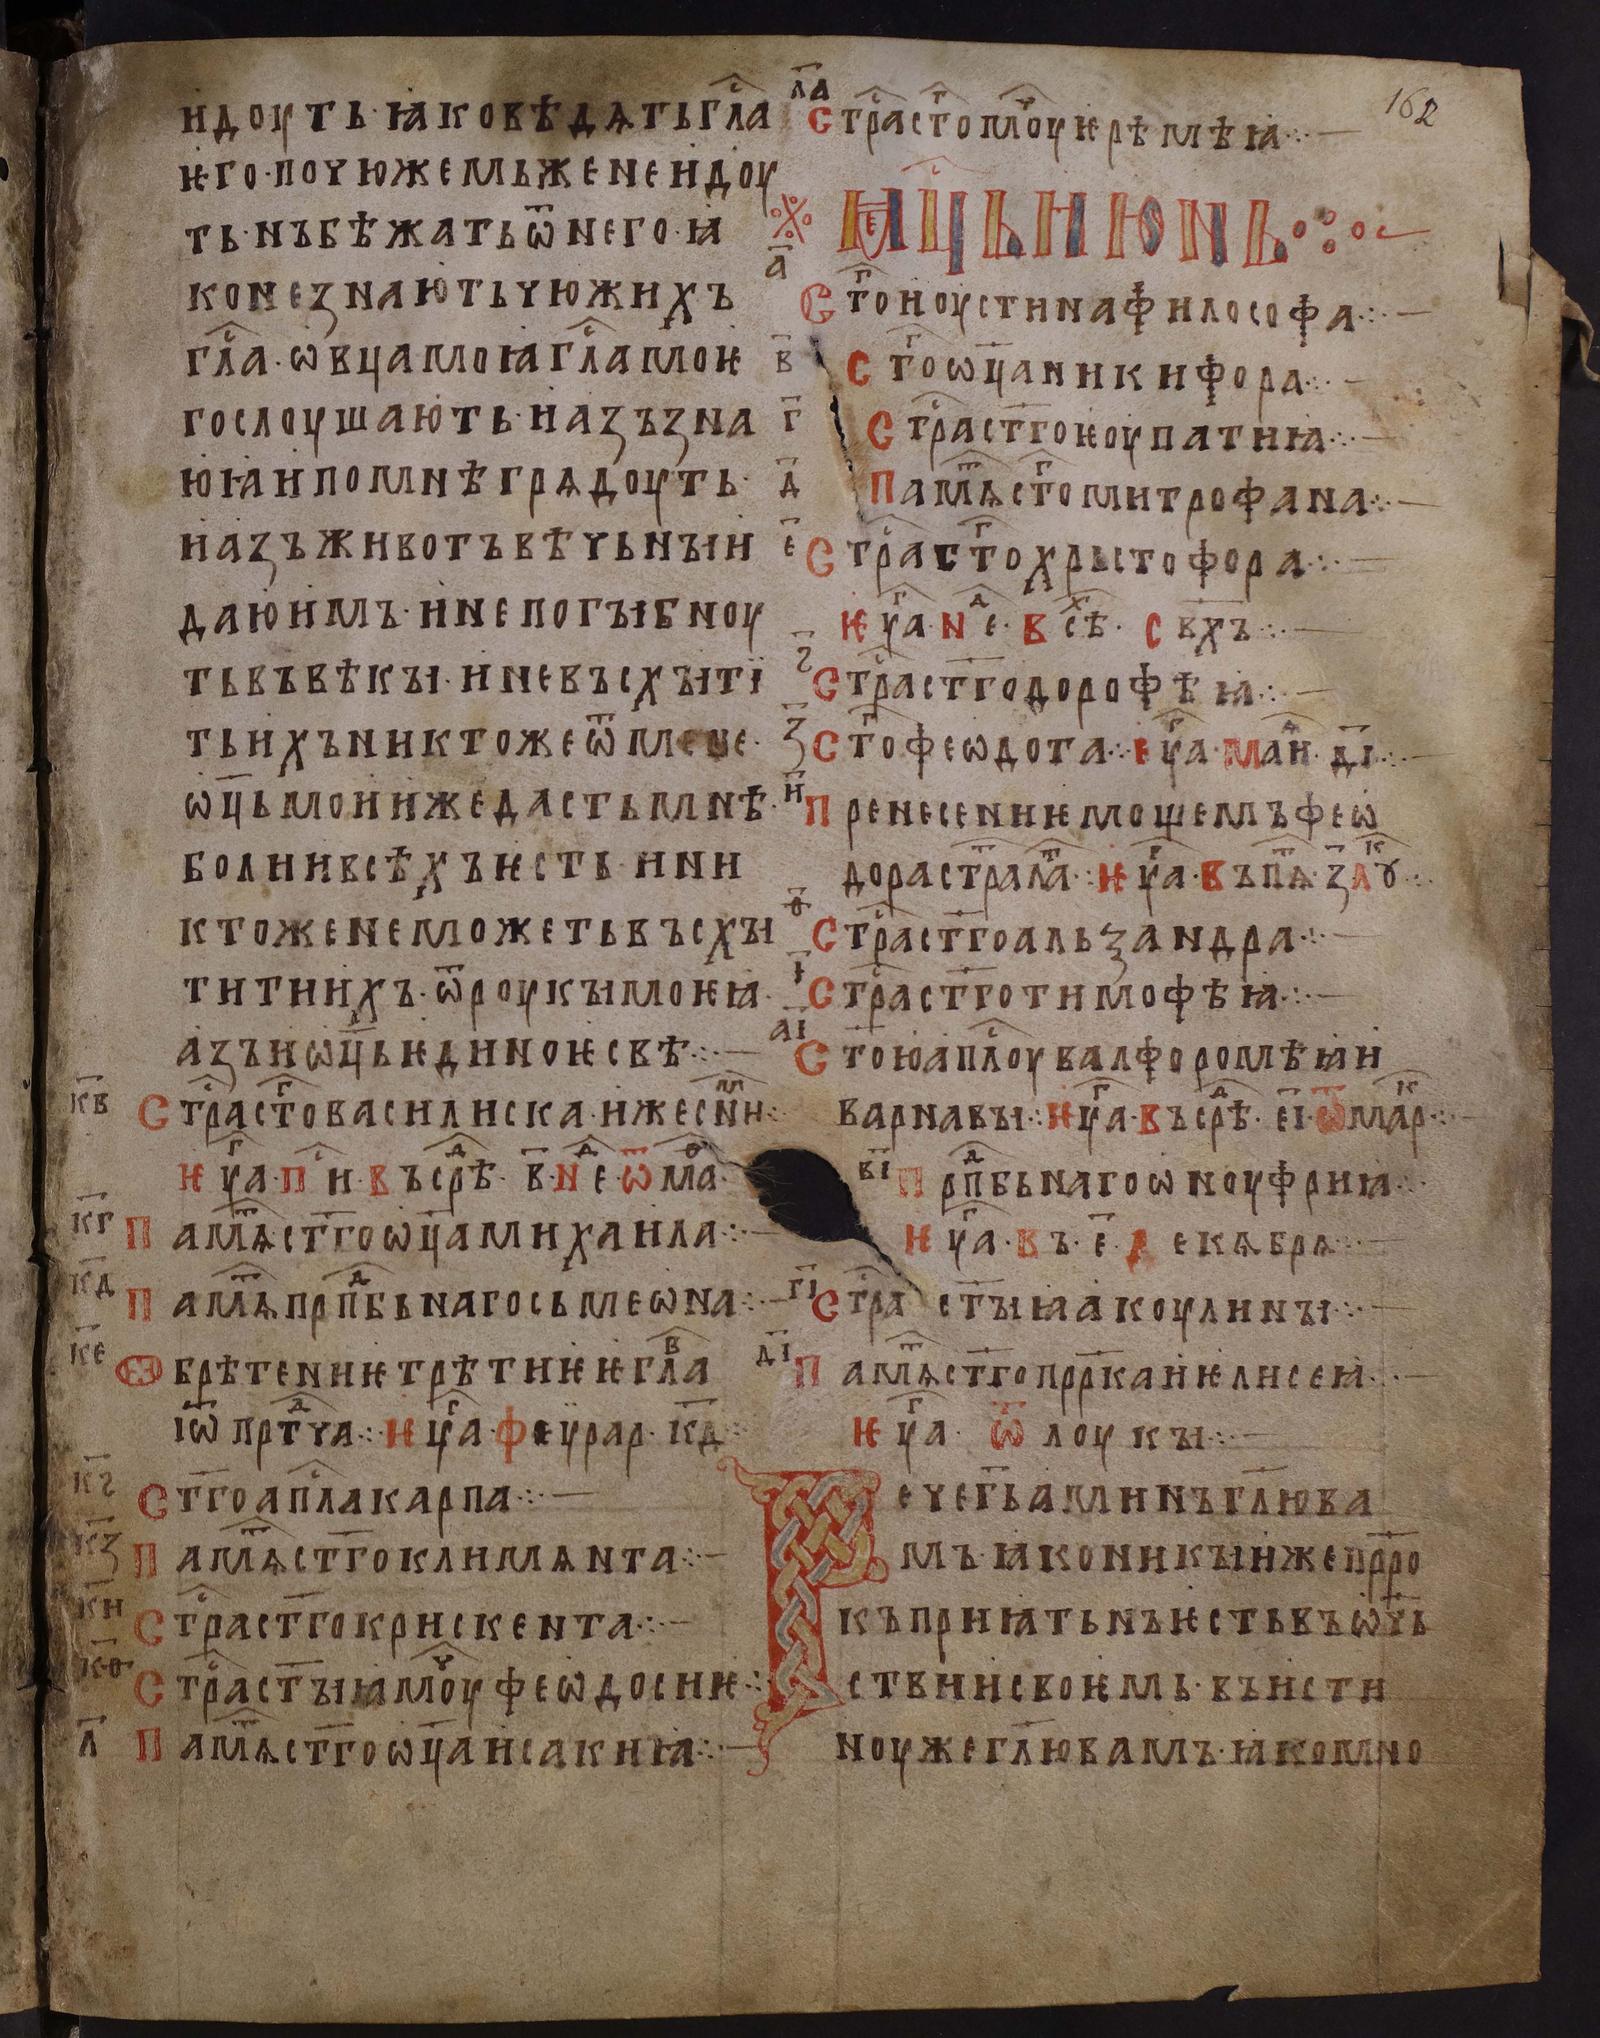 идоуть·ꙗковѣдѧтьгл҃са
ѥго·почюжемьженеидоу
ть·нъбѣжатьѿнего·ꙗ
конезнаютьчюжихъ
гл҃са·ѡвцамоꙗгл҃самоѥ
гослоушають·иазъзна
юꙗипомнѣгрѧдоуть·
иазъживотъвѣчьнꙑи
даюимъ·инепогꙑбноу
тьвъвѣкꙑ·иневъсхꙑтї
тьихъниктожеѿмене·
ѡц҃ьмоиижедастьмнѣ·
болиивсѣхъѥсть·ини
ктоженеможетьвъсхꙑ
титиихъ·ѿроукꙑмоѥꙗ·
азъиѡц҃ьѥдиноѥсвѣ
кв҃ Стрⷭ҇астⷢ҇овасилиска·ижесъниⷨ
ѥуⷢ҇а·пⷭ҇и·въсрⷣѣ·в҃·нⷣе·ѿмаⷴ
кг҃ Памѧⷮст҃гоѡц҃амихаила
кд҃ Памѧⷮпрпⷣбьнагосьмеѡна
ке҃ Ѡбрѣтениѥтрѣтиѥѥглⷡ҇а
іѡ҃прⷣтча·ѥуⷢ҇а·феурар·кд҃
кѕ҃ Ст҃гоапⷭ҇лакарпа
кз҃ Памѧⷮст҃гоклимѧнта
ки҃ Стрⷭ҇аст҃гокрискента
кѳ҃ Стрⷭ҇астꙑꙗмоⷱ҇уфеѡдосиѥ
л҃ Памѧⷮст҃гоѡц҃аисакиꙗ
ла҃ Стрⷭ҇астⷢ҇омⷱ҇оуѥрѣмѣꙗ
162
Мⷭ҇ЦЬИЮНЬ
а҃ Стⷢ҇оиоустинафилософа
в҃ Стⷢ҇оѡц҃аникифора
г҃ Стрⷭ҇аст҃гоѥоупатиꙗ
д҃ Памѧⷮстⷢ҇омитрофана
е҃ Стрⷭ҇астⷢ҇охрьстофора
ѥуⷢ҇а·нⷣе·всⷯѣ·свхъ
ѕ҃ Стрⷭ҇аст҃годорофѣꙗ
з҃ Стⷢ҇офеѡдота·еуⷢ҇а·маⷶи·ді҃
и҃ Пренесениѥмощемъфеѡ
дорастрⷮалаⷮ·ѥуⷢ҇а·въпѧⷮ·з҃лꙋⷦ
ѳ҃ Стрⷭ҇аст҃гоальзандра
і҃ Стрⷭ҇аст҃готимофѣꙗ
аі҃ Стоюапⷭ҇лоувалфоромѣꙗи
варнавꙑ·ѥуⷢ҇а·въсрⷣѣ·еі҃·ѿмарⷦ
ві҃ Прпⷣбьнагоѡноуфриꙗ
ѥуⷢ҇а·въ·е҃·декѧбрѧ
гі҃ Стрⷭ҇астꙑꙗакоулинꙑ
ді҃ Памѧⷮст҃гопррⷪ҇каиѥлисеꙗ
ѥуⷢ҇а·ѿлоукꙑ
Речег҃ьаминъгл҃юва
мъ·ꙗконикꙑижепрр҃о
къприꙗтьнъѥстьвъѡч҃ь
ствиисвоѥмь·въисти
ноужегл҃ювамъ·ꙗкомно